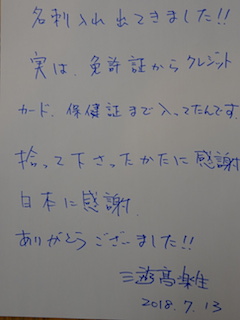 名刺入れ出てきました!!
実は、免許証からクレジット
カード、保健証まで入ってたんです。
拾って下さったかたに感謝
日本に感謝
ありがとうございました!!
三遊亭楽生
2018.7.13